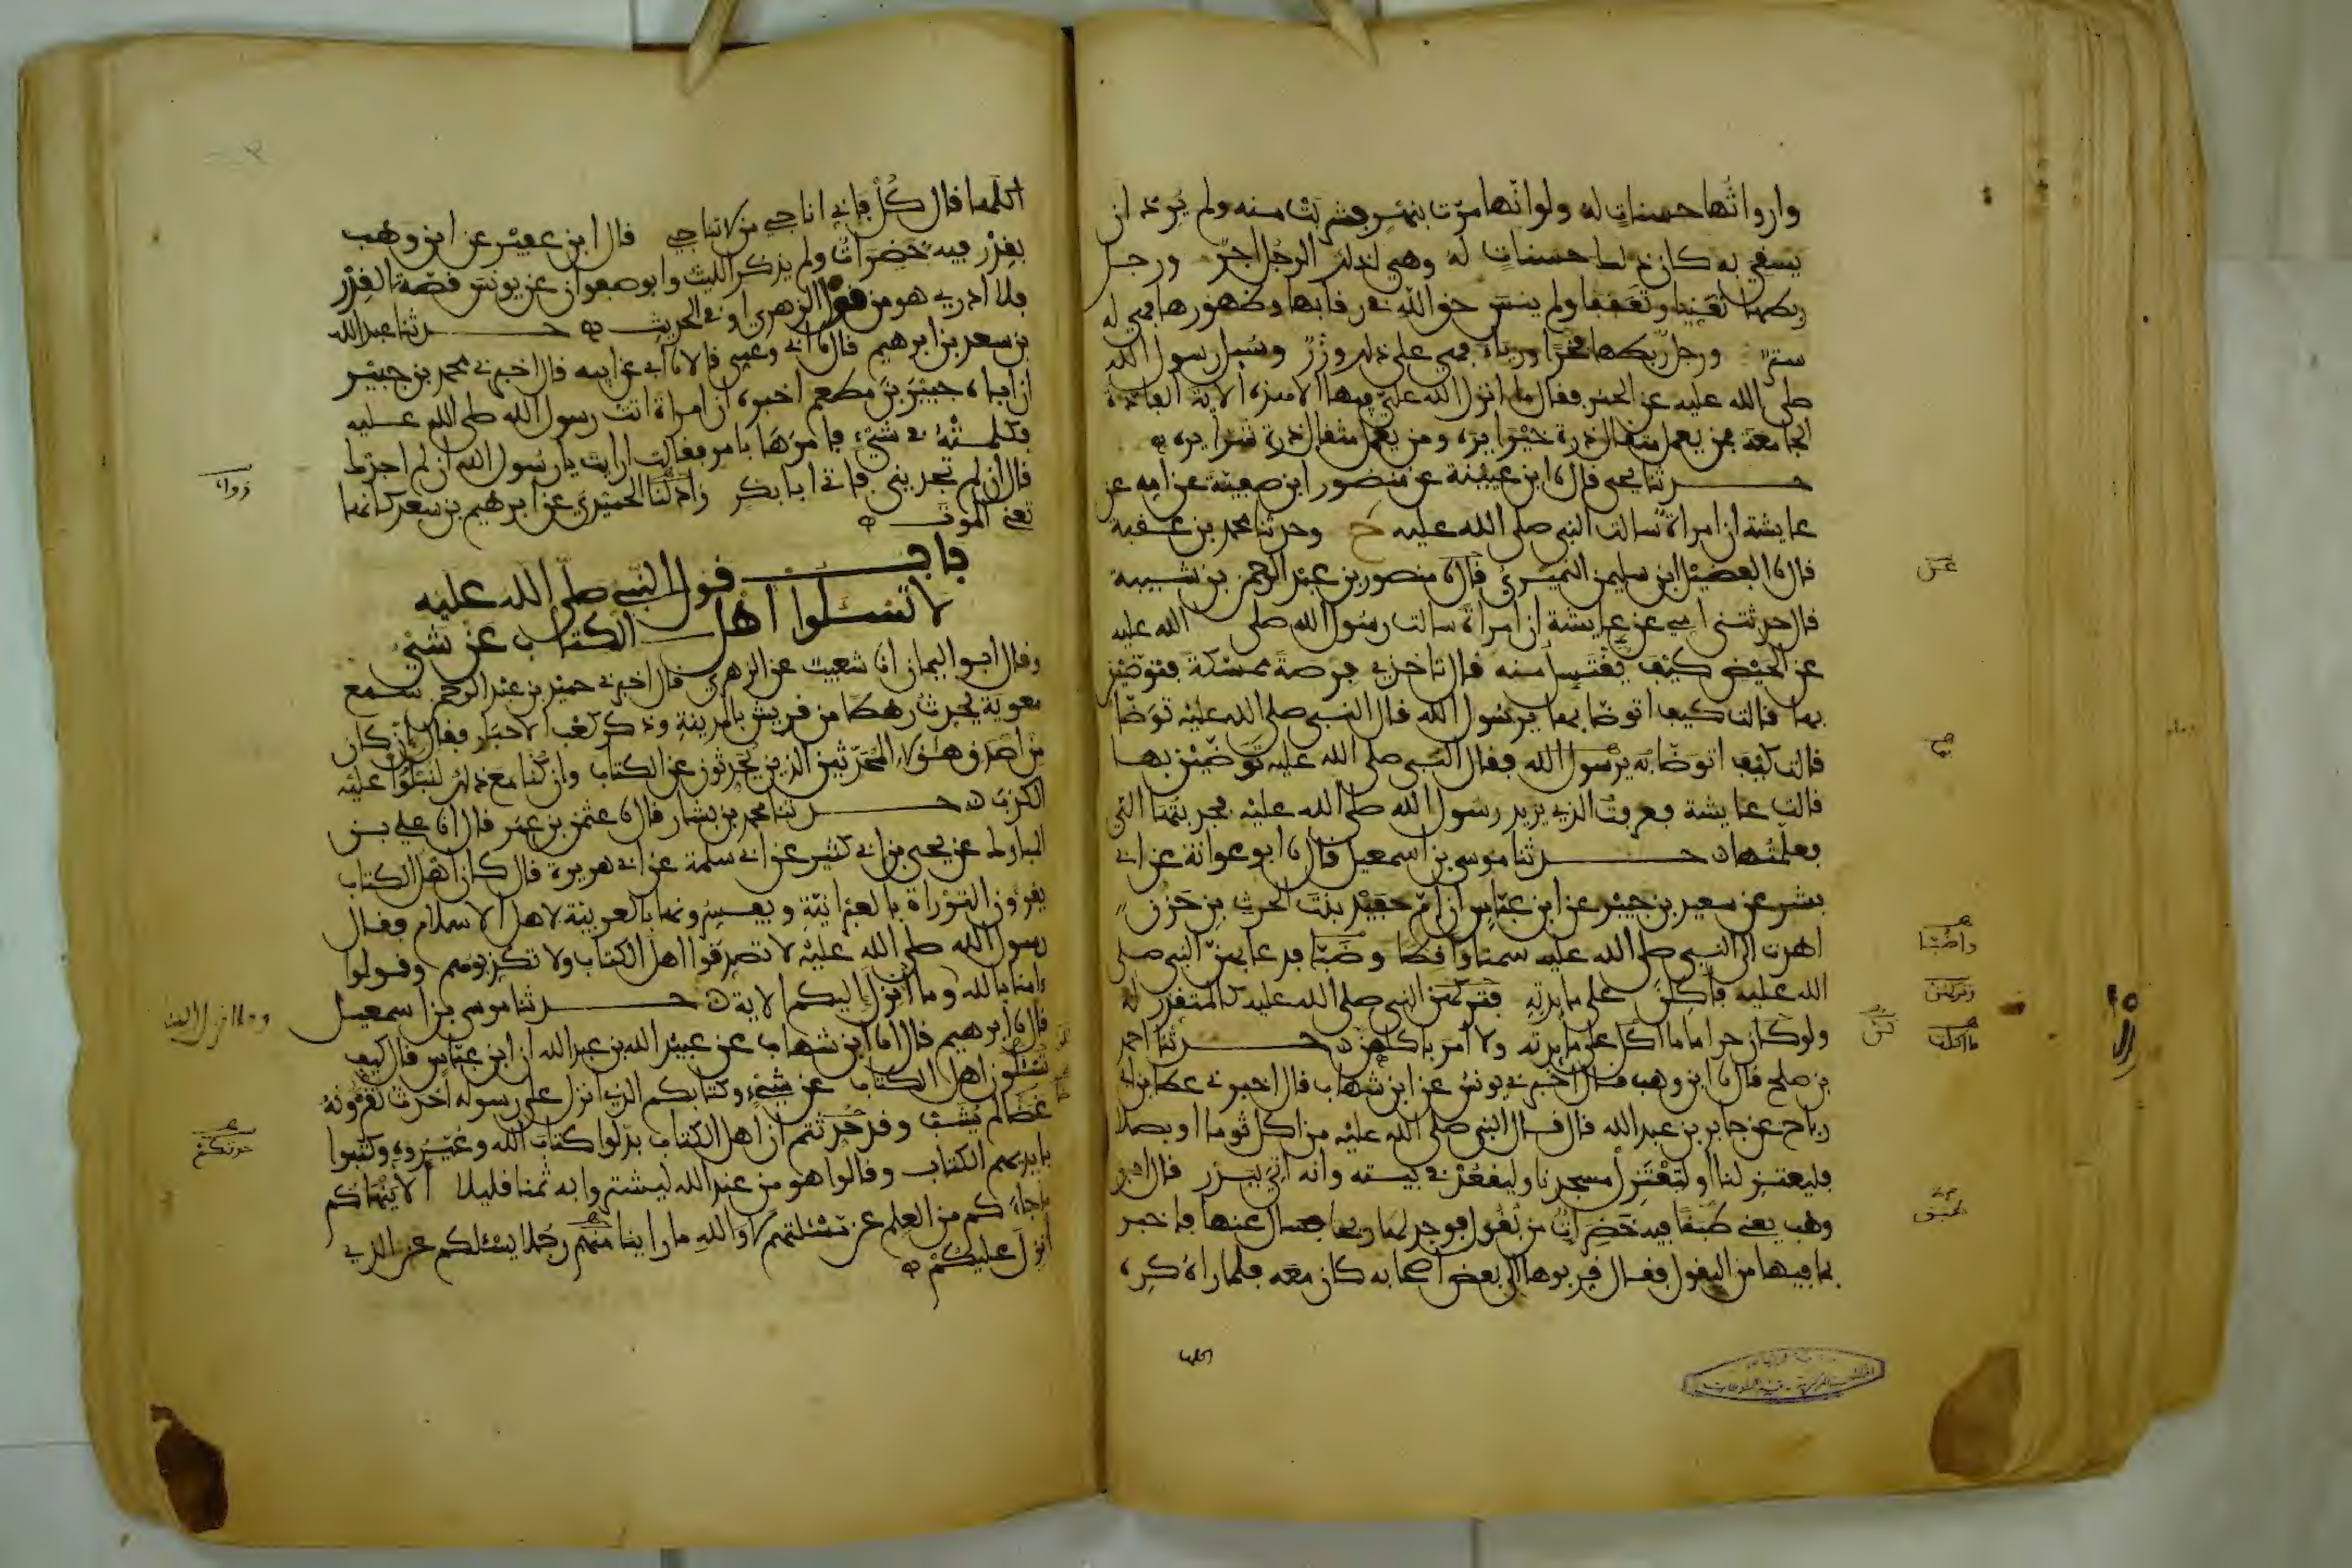 وارواثها حسنات له ولو انها مرت بنهر فشربت منه ولم يرد ان
يسقي به كان ذلك حسنات له وهي لذلك الرجل اجر ورجل
ربطها تغنيا وتعففا ولم ينس حق الله في رقابها وظهورها فهي له
ستر ورجل ربطها فخرا ورياء فهي على ذلك وزر وسئل رسول الله
صلى الله عليه عن الحمر فقال ما انزل الله علي فيها الا هذه الاية الفاذة
الجامعة فمن يعمل مثقال ذرة خيرا يره ومن يعمل مثقال ذرة شرا يره
حدثنا يحيى قال نا ابن عيينة عن منصور ابن صفية عن امه عن
عايشة ان امراة سالت النبي صلى الله عليه ح وحدثنا محمد بن عقبة
قال نا الفضيل ابن سليمن النميري قال نا منصور بن عبد الرحمن بن شيبة
قال حدثتني امي عن عايشة ان امراة سالت رسول الله صلى الله عليه
عن الحيض كيف يغتسل منه قال تاخذي فرصة ممسكة فتوضئين
بها قالت كيف اتوضا بها يرسول الله قال النبي صلى الله عليه توضا
قالت كيف اتوضا به يرسول الله فقال النبي صلى الله عليه توضئين بها
قالت عايشة فعرفت الذي يريد رسول الله صلى الله عليه فجذبتها الي
فعلمتها حدثنا موسى بن اسمعيل قال نا ابو عوانة عن ابي
بشر عن سعيد بن جبير عن ابن عباس ان ام حفيد بنت الحرث بن حزن
اهدت الى النبي صلى الله عليه سمنا واقطا وضبا فدعا بهن النبي صلى
الله عليه فاكلن على مايدته فتركهن النبي صلى الله عليه كالمتقذر له
ولو كان حراما ما اكل على مايدته ولا امر باكلهن حدثنا احمد
بن صلح قال نا ابن وهب قال اخبرني يونس عن ابن شهاب قال اخبرني عطا بن ابي
رباح عن جابر بن عبد الله قال قال النبي صلى الله عليه من اكل ثوما او بصلا
فليعتزلنا او ليعتزل مسجدنا وليقعد في بيته وانه اتي ببدر قال ابن
وهب يعني طبقا فيه خضرات من بقول فوجد لها ريحا فسال عنها فاخبر
بما فيها من البقول فقال قربوها الى بعض اصحابه كان معه فلما راه كره
اكلها
عن
بها
واضبا
وتركهن
ما اكلن
طبق
اكلها قال كل فاني اناجي من لا تناجي قال ابن عفير عن ابن وهب
بقدر فيه خضرات ولم يذكر الليث وابو صفوان عن يونس قصة القدر
فلا ادري هو من قول الزهري او في الحديث حدثنا عبيد الله
بن سعد بن ابرهيم قال نا ابي وعمي قالا نا ابي عن ابيه قال اخبرني محمد بن جبير
ان اباه جبير بن مطعم اخبره ان امراة اتت رسول الله صلى الله عليه
فكلمته في شيء فامرها بامر فقالت ارايت يا رسول الله ان لم اجدك
قال ان لم تجديني فاتي ابا بكر زاد لنا الحميدي عن ابرهيم بن سعد كانها
تعني الموت
باب قول النبي صلى الله عليه
لا تسئلوا اهل الكتاب عن شيء
وقال ابو اليمان انا شعيب عن الزهري قال اخبرني حميد بن عبد الرحمن سمع
معوية يحدث رهطا من قريش بالمدينة وذكر كعب الاحبار فقال ان كان
من اصدق هؤلاء المحدثين الذين يحدثون عن الكتاب وان كنا مع ذلك لنبلوا عليه
الكذب حدثنا محمد بن بشار قال نا عثمن بن عمر قال انا علي بن
المبارك عن يحيى بن ابي كثير عن ابي سلمة عن ابي هريرة قال كان اهل الكتاب
يقرءون التوراة بالعبرانية ويفسرونها بالعربية لاهل الاسلام فقال
رسول الله صلى الله عليه لا تصدقوا اهل الكتاب ولا تكذبوهم وقولوا
امنا بالله وما انزل اليكم الاية حدثنا موسى بن اسمعيل
قال نا ابرهيم قال انا ابن شهاب عن عبيد الله بن عبد الله ان ابن عباس قال كيف
تسئلون اهل الكتاب عن شيء وكتابكم الذي انزل على رسوله احدث تقرءونه
غضا لم يشب وقد حدثتم ان اهل الكتاب بدلوا كتاب الله وغيروه وكتبوا
بايديهم الكتاب وقالوا هو من عند الله ليشتروا به ثمنا قليلا الا ينهاكم
ما جاءكم من العلم عن مسئلتهم لا والله ما راينا منهم رجلا يسئلكم عن الذي
انزل عليكم
زواد
وما انزل الينا